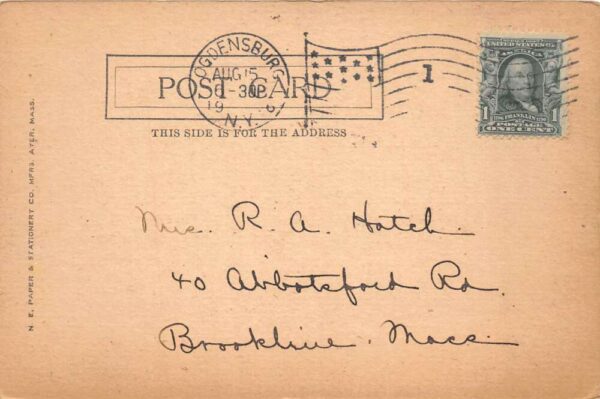 OGDENSBURG
AUG 15
6-30P
19 6
N.Y.
1
UNITED STATES OF AMERICA
FRANKLIN
1 POSTAGE 1
ONE CENT
POST CARD
THIS SIDE IS FOR THE ADDRESS
N. E. PAPER & STATIONERY CO. MFRS. AYER, MASS.
Mrs. R. A. Hatch.
40 Abbotsford Rd.
Brookline. Mass.